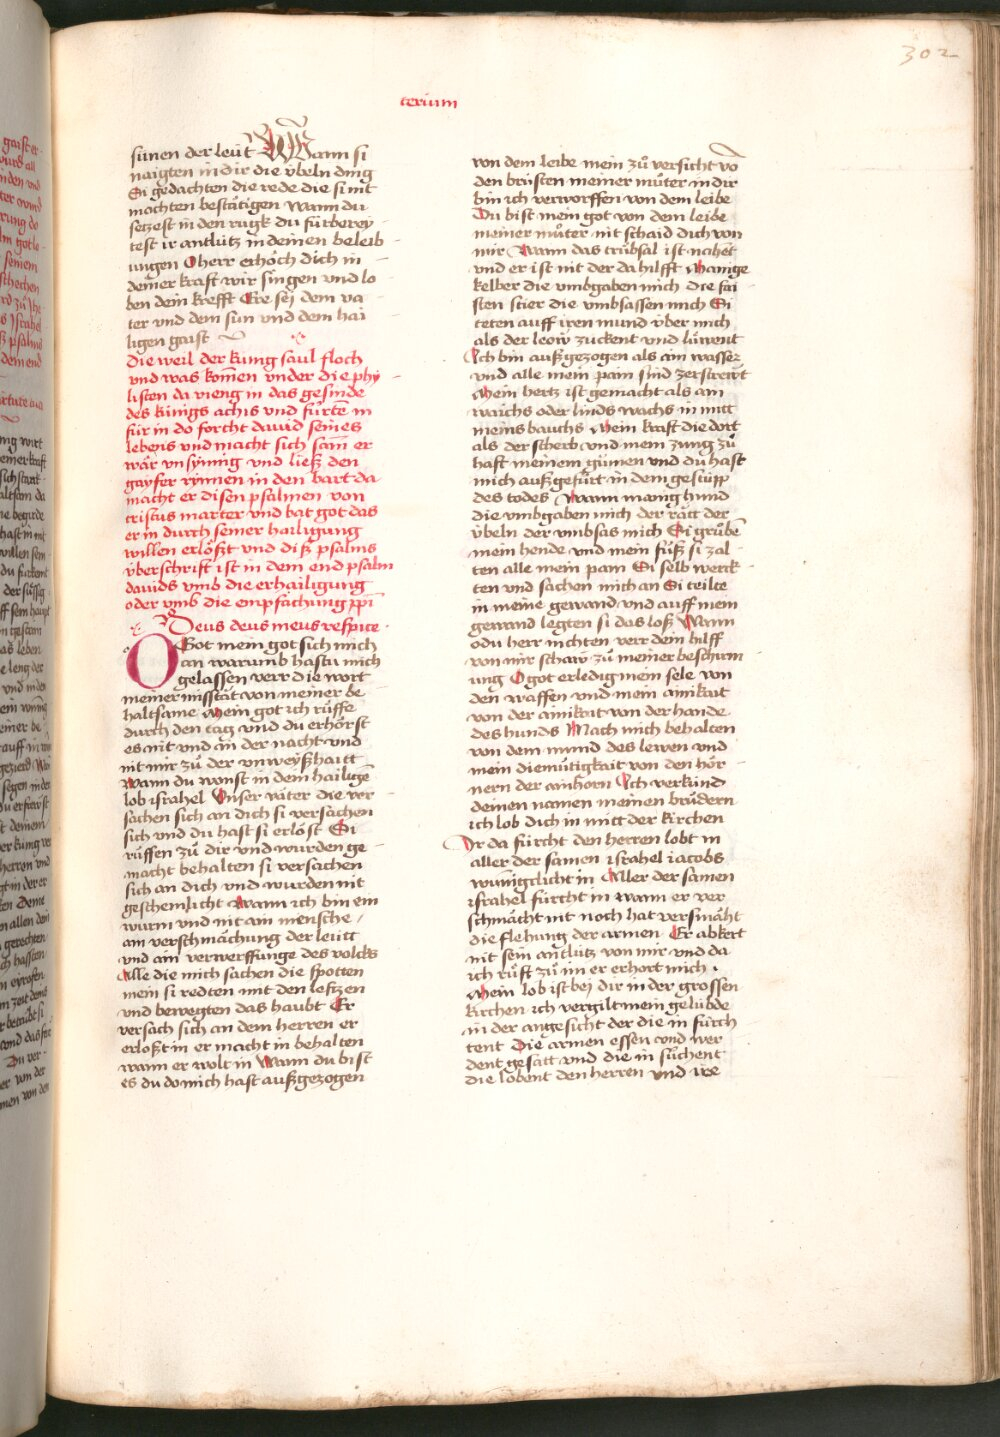 302
terium
sünen der leüt Wann si
naigten in dir die v̈beln ding
Si gedachten die rede die si nit
mochten bestätigen Wann du
setzest in den rugk du fürberey
test ir antlütz in deinen beleib
ungen O herr erhöch dich in
deiner kraft wir singen und lo
ben dein krefft Ere sej dem va
ter vnd dem sun vnd dem hai
ligen gaist
Die weil der kung saul floch
vnd was kom̄en vnder die phy
listen da vieng in das gesinde
des künigs achis vnd fürtē in
für in do forcht dauid seines
lebens vnd macht sich sam̄ er
wär vnsynnig vnd ließ den
gayfer rynnen in den bart da
macht er disen psalmen von
cristus marter vnd bat got das
er in durch seiner hailigung
willen erlößt vnd diß psalms
v̈berschrift ist in dem end psalm
dauids vmb die erhailigung
oder vmb die enpfachung xp̄i
Deus deus meus respice
O Got mein got sich mich
an warumb hastu mich
gelassen verr die wort
meiner misstät von meiner be
haltsame Mein got ich rüffe
durch den tag vnd du erhörst
es nit vnd an der nacht vnd
nit mir zů der vnweyßhaitt
Wann du wonst in dem hailigē
lob israhel Vnser väter die ver
sachen sich an dich si versachen
sich vnd du hast si erlöst Si
rüffen zů dir vnd wurden ge
macht behalten si versachen
sich an dich vnd wurden nit
geschemlicht Wann ich bin ein
wurm vnd nit ain mensche /
ain verschmächung der leütt
vnd ain verwerffunge des volcks
Alle die mich sachen die spotten
mein si redten mit den leftzen
vnd bewegten das haubt Er
versach sich an dem herren er
erlößt in er macht in behalten
wann er wolt in Wann du bist
es du do mich hast außgezogen
von dem leibe mein zů versicht vō
den brüsten meiner můter in dir
bin ich verworffen von dem leibe
Du bist mein got von dem leibe
meiner můter nit schaid dich von
mir Wann das trübsal ist nahet
vnd er ist nit der da hilfft Manige
kelber die vmbgaben mich die fai
sten stier die vmbsassen mich Si
teten auff iren mund v̈ber mich
als der leow zuckent vnd lüwent
Ich bin außgezogen als ain wasser
vnd alle mein pain sind zerstrewt
Mein hertz ist gemacht als ain
waichs oder linds wachs in mitt
meins bauchs Mein kraft die dort
als der scherb vnd mein zung zů
haft meinem gümen vnd du hast
mich außgefürt in dem gestüpp
des todes Wann manig hund
die vmbgaben mich der rätt der
v̈beln der vmbsas mich Si grůbē
mein hende vnd mein füß si zal
ten alle mein pain Si selb merck
ten vnd sachen mich an Si teilte
in meine gewand vnd auff mein
gewand legten si das loß Wann
o du herr nichten verr dein hilff
von mir schaw zů meiner beschirm
ung O got erledig mein sele von
den waffen vnd mein ainikait
von der ainikait von der hande
des hunds Mach mich behalten
von dem mund des lewen vnd
mein diemütigkait von den hör
nern der ainhorn Ich verkünd
deinen namen meinen brüdern
ich lob dich in mitt der kirchen
Ir da fürcht den herren lobt in
aller der samen israhel iacobs
wunigclicht in Aller der samen
israhel fürcht in wann er ver
schmächt nit noch hat versmäht
die flehung der armen Er abkert
nit sein antlütz von mir vnd da
ich rüft zů im er erhort mich .
Mein lob ist bej dir in der grossen
kirchen ich vergilt mein gelübde
in der angesicht der die in fürch
tent Die armen essen vnd wer
dent gesatt vnd die in sůchent
die lobent den herren vnd ire